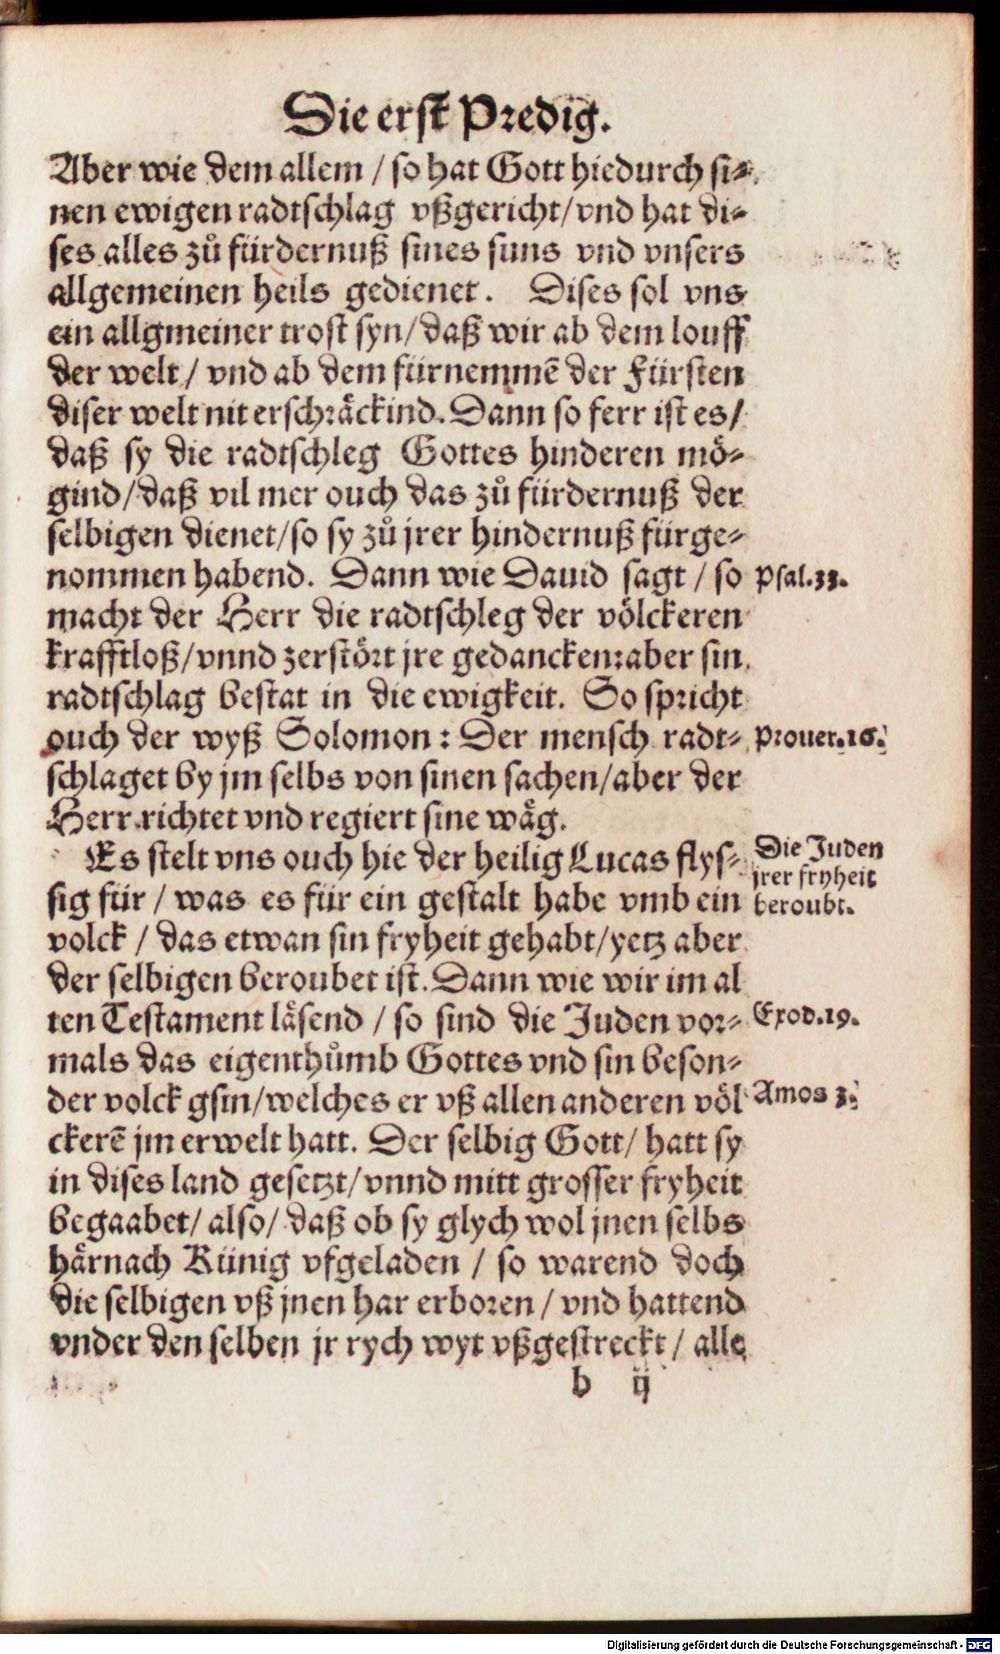 Die erst Predig.
Aber wie dem allem / so hat Gott hiedurch si-
nen ewigen radtschlag vßgericht/vnd hat di-
ses alles zů fürdernuß sines suns vnd vnsers
allgemeinen heils gedienet. Dises sol vns
ein allgmeiner trost syn/daß wir ab dem louff
der welt/ vnd ab dem fürnemmē der Fürsten
diser welt nit erschräckind. Dann so ferr ist es/
daß sy die radtschleg Gottes hinderen mö-
gind/daß vil mer ouch das zů fürdernuß der
selbigen dienet/so sy zů jrer hindernuß fürge-
nommen habend. Dann wie Dauid sagt / so
Psal.33.
macht der Herr die radtschleg der völckeren
krafftloß/vnnd zerstört jre gedancken:aber sin
radtschlag bestat in die ewigkeit. So spricht
ouch der wyß Solomon: Der mensch radt-
Prouer.16.
schlaget by jm selbs von sinen sachen/aber der
Herr richtet vnd regiert sine wäg.
Es stelt vns ouch hie der heilig Lucas flys-
Die Juden
jrer fryheit
beroubt.
sig für / was es für ein gestalt habe vmb ein
volck / das etwan sin fryheit gehabt/yetz aber
der selbigen beroubet ist. Dann wie wir im al
ten Testament läsend / so sind die Juden vor-
Exod.19.
mals das eigenthůmb Gottes vnd sin beson-
der volck gsin/welches er vß allen anderen völ
Amos 3.
ckerē jm erwelt hatt. Der selbig Gott/ hatt sy
in dises land gesetzt/vnnd mitt grosser fryheit
begaabet/ also/ daß ob sy glych wol jnen selbs
härnach Künig vfgeladen / so warend doch
die selbigen vß jnen har erboren / vnd hattend
vnder den selben jr rych wyt vßgestreckt / alle
b ij
Digitalisierung gefördert durch die Deutsche Forschungsgemeinschaft - DFG